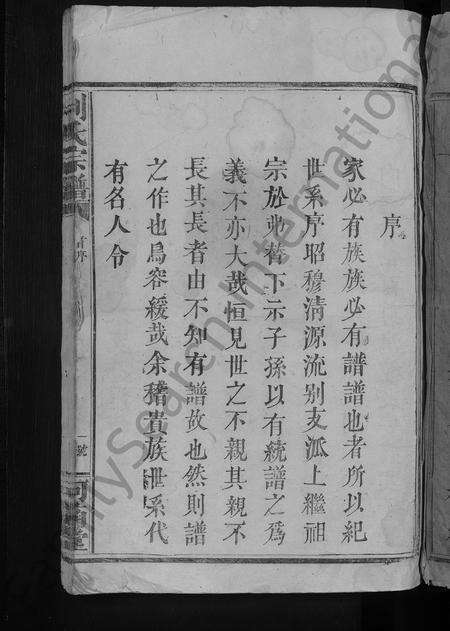 序
家必有族族必有譜譜也者所以紀
世系序昭穆清源流别支泒上繼祖
宗於弗替下示子孫以有統譜之爲
義不亦大哉恒見世之不親其親不
長其長者由不知有譜故也然則譜
之作也烏容緩哉余稽貴族世系代
有名人令
劉氏宗譜
序
一號
堂
FamilySearch International